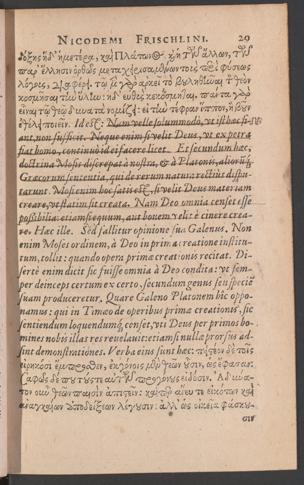 NICODEMI FRISCHLINI. 20
δόξης ἥδ' ἡμετέρα, καὶ Πλάτων
Id est, Nam velle solummodo, vt ist hæc fi-
ant, non sufficit. Neque enim si velit Deus, vt ex petra
fiat homo, continuò id efficere licet. Et secundum hæc,
doctrina Mosis discrepat à nostra, & à Platonis, aliorúmq́;
Græcorum sententia, qui de rerum natura rectius dispu-
tarunt. Mosi enim hoc satis est, si velit Deus materiam
creare, vt statim sit creata. Nam Deo omnia censet esse
possibilia: etiamsi equum, aut bouem velit è cinere crea-
re. Hæc ille. Sed fallitur opinione sua Galenus. Non
enim Moses ordinem, à Deo in prima creatione institu-
tum, tollit: quando opera primæ creationis recitat. Di-
sertè enim dicit sic fuisse omnia à Deo condita: vt sem-
per deinceps certum ex certo, secundum genus seu speciem
suam produceretur. Quare Galeno Platonem hic oppo-
namus: qui in Timæo de operibus primæ creationis, sic
sentiendum loquendumq́; censet, vti Deus per primos ho-
mines nobis illas res reuelauit: etiamsi nulla prorsus ad-
sint demonstrationes. Verba eius sunt hæc: πειστέον δὲ τοῖς
εἰρηκόσι ἔμπροσθεν, ἐκγόνοις μὲν θεῶν οὖσιν, ὡς ἔφασαν:
σαφῶς δέ που τούς γε αὑτῶν προγόνους εἰδόσιν. Ἀδύνα-
τον οὖν θεῶν παισὶν ἀπιστεῖν: καίπερ ἄνευ τε εἰκότων καὶ
ἀναγκαίων ἀποδείξεων λέγουσιν: ἀλλ' ὡς οἰκεῖα φάσκου-
σιν